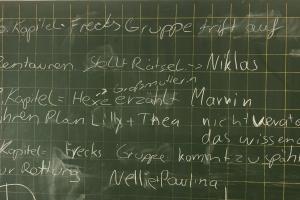 . Kapitel = Frecks Gruppe trift auf
Zentauren. stellt Rätsel => Niklas
großmutter
. Kapitel = Hexe erzählt Marvin
ihren Plan Lilly + Thea nicht verat
das wissen
Kapitel = Frecks Gruppe kommt zu spät
zur Rettung
Nellie + Paulina